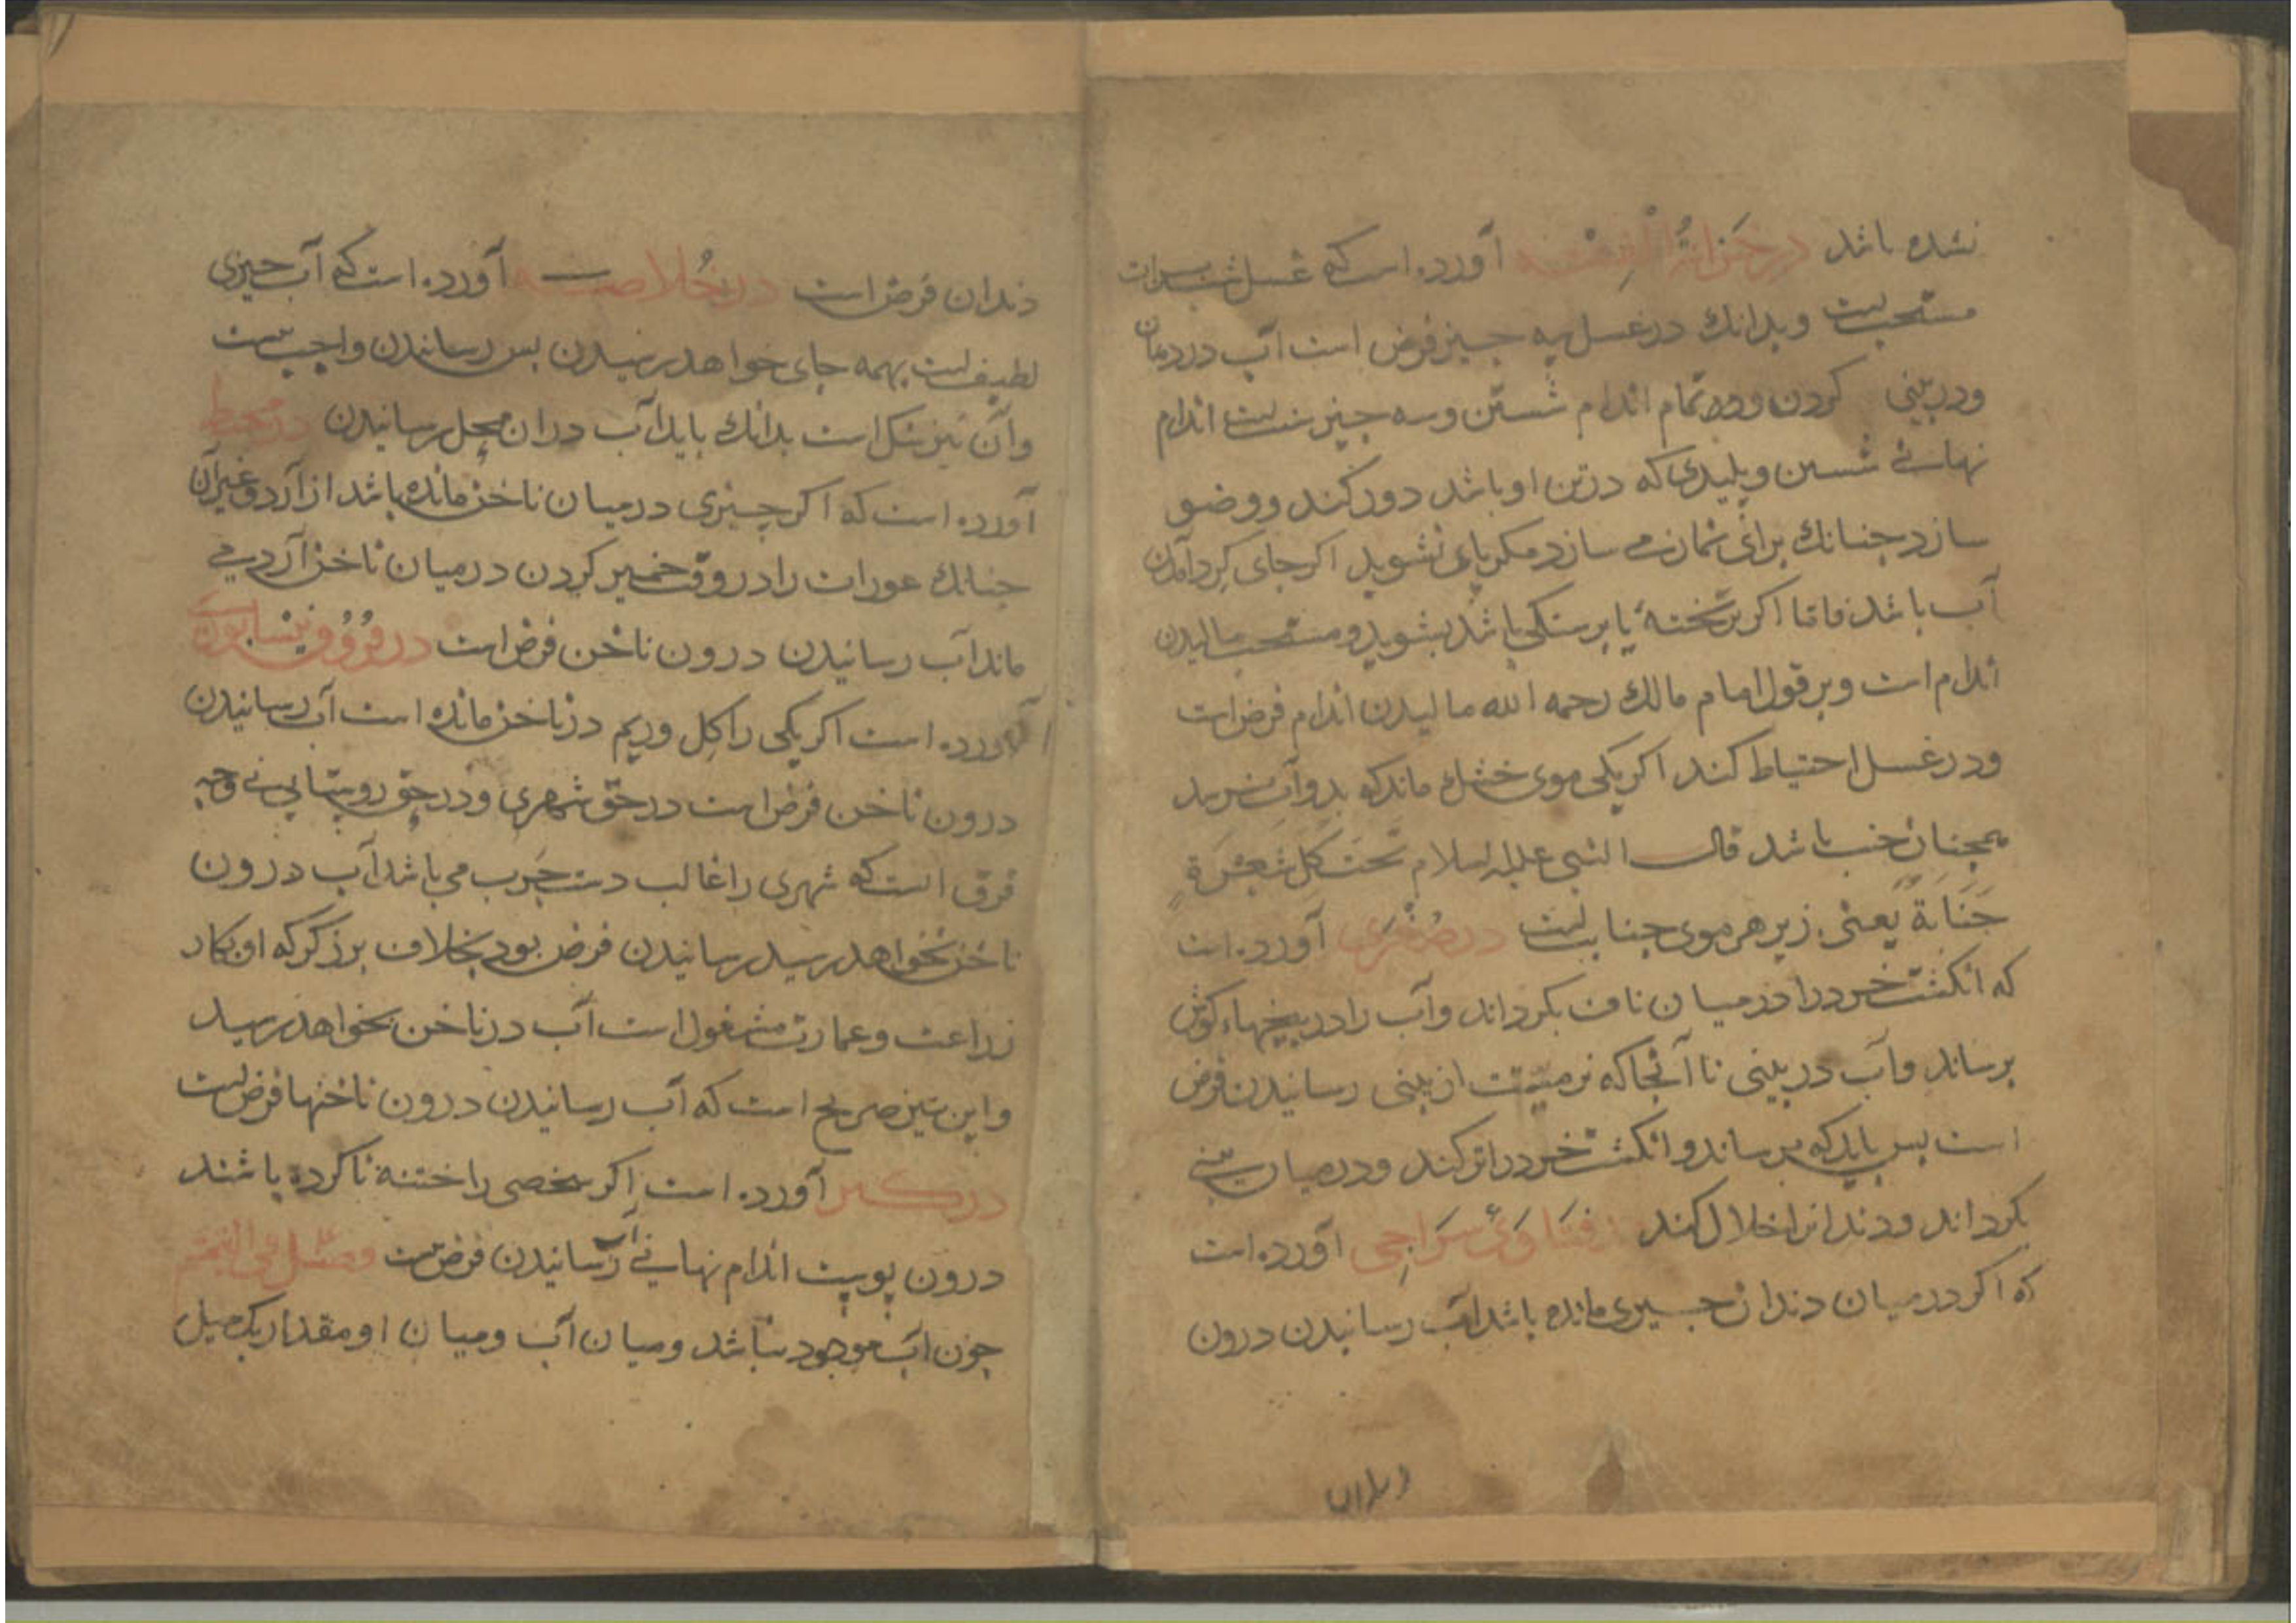 نشده باشد در خزانة الفقه آورده است که غسل شب برات
مستحب است و بدانك در غسل سه چیز فرض است آب در دهان
و در بینی کردن و در تمام اندام شستن و سه چیز سنت است اندام
نهانی شستن و پلیدی که در تن او باشد دور کند و وضو
سازد چنانك برای نماز می سازد مکر پای نشوید اکر جای کرد آمدن
آب باشد فاما اکر بر تختهٔ یا بر سنکی باشد بشوید و مستحب مالیدن
اندام است و بر قول امام مالك رحمه الله مالیدن اندام فرض است
و در غسل احتیاط کند اکر یکی موی خشك ماند که بدو آب نرسد
همچنان جنب باشد قال النبی علیه السلام تَحتَ کُل شَعْرَةٍ
جَنَابَةٌ یعنی زیر هر موی جنابت است در صُغْرَی آورده است
که انکشت خرد را در میان ناف بکرداند و آب را در بیخهاء کوش
برساند و آب در بینی تا آنجا که نرمیست از بینی رسانیدن فرض
است بس باید که برساند و انکشت خرد را تر کند و در میان بینی
بکرداند و دندانرا خلال کند در فتاوی سراجی آورده است
که اکر در میان دندان چیزی مانده باشد آب رسانیدن درون
دندان فرض است در خلاصه آورده است که آب چیزی
لطیف است بهمه جای خواهد رسیدن بس رسانیدن واجب نیست
و آن نیز مشکل است بدانك باید آب در ان محل رسانیدن در محیط
آورده است که اکر چیزی در میان ناخن مانده باشد از آرد و غیر آن
چنانك عورات را در وقت خمیر کردن در میان ناخن آرد می
ماند آب رسانیدن درون ناخن فرض است در فروق نیسابوری
آورده است اکر یکی را کل و ریم در ناخن مانده است آب رسانیدن
درون ناخن فرض است در حق شهری و در حق روستایی نی وجه
فرق انست که شهری را غالب دست چَرب می باشد آب درون
ناخن نخواهد رسید رسانیدن فرض بود بخلاف برزکر که او بکار
زراعت و عمارت مشغول است آب در ناخن بخواهد رسید
و این نیز صریح است که آب رسانیدن درون ناخنها فرض است
در کبیر آورده است اکر شخصی را ختنه ناکرده باشند
درون پوست اندام نهانی آب رسانیدن فرض نیست فصل فی التیمم
چون آب موجود نباشد و میان آب و میان او مقدار یك میل